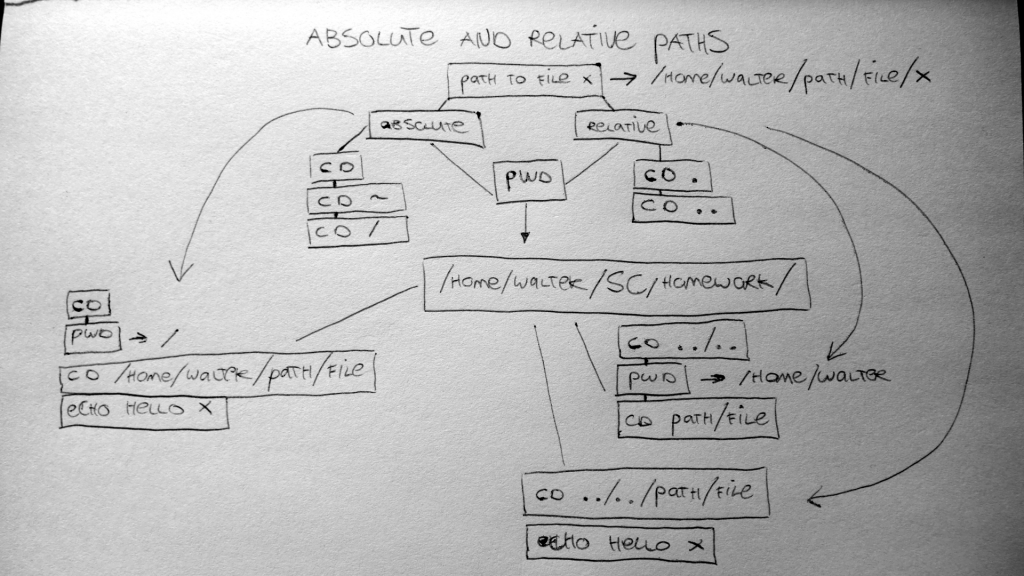 ABSOLUTE AND RELATIVE PATHS
PATH TO FILE X → /HOME/WALTER/PATH/FILE/X
ABSOLUTE
RELATIVE
CD
CD ~
CD /
PWD
CD .
CD ..
/HOME/WALTER/SC/HOMEWORK/
CD
PWD → /
CD /HOME/WALTER/PATH/FILE
ECHO HELLO X
CD ../..
PWD → /HOME/WALTER
CD PATH/FILE
CD ../../PATH/FILE
ECHO HELLO X